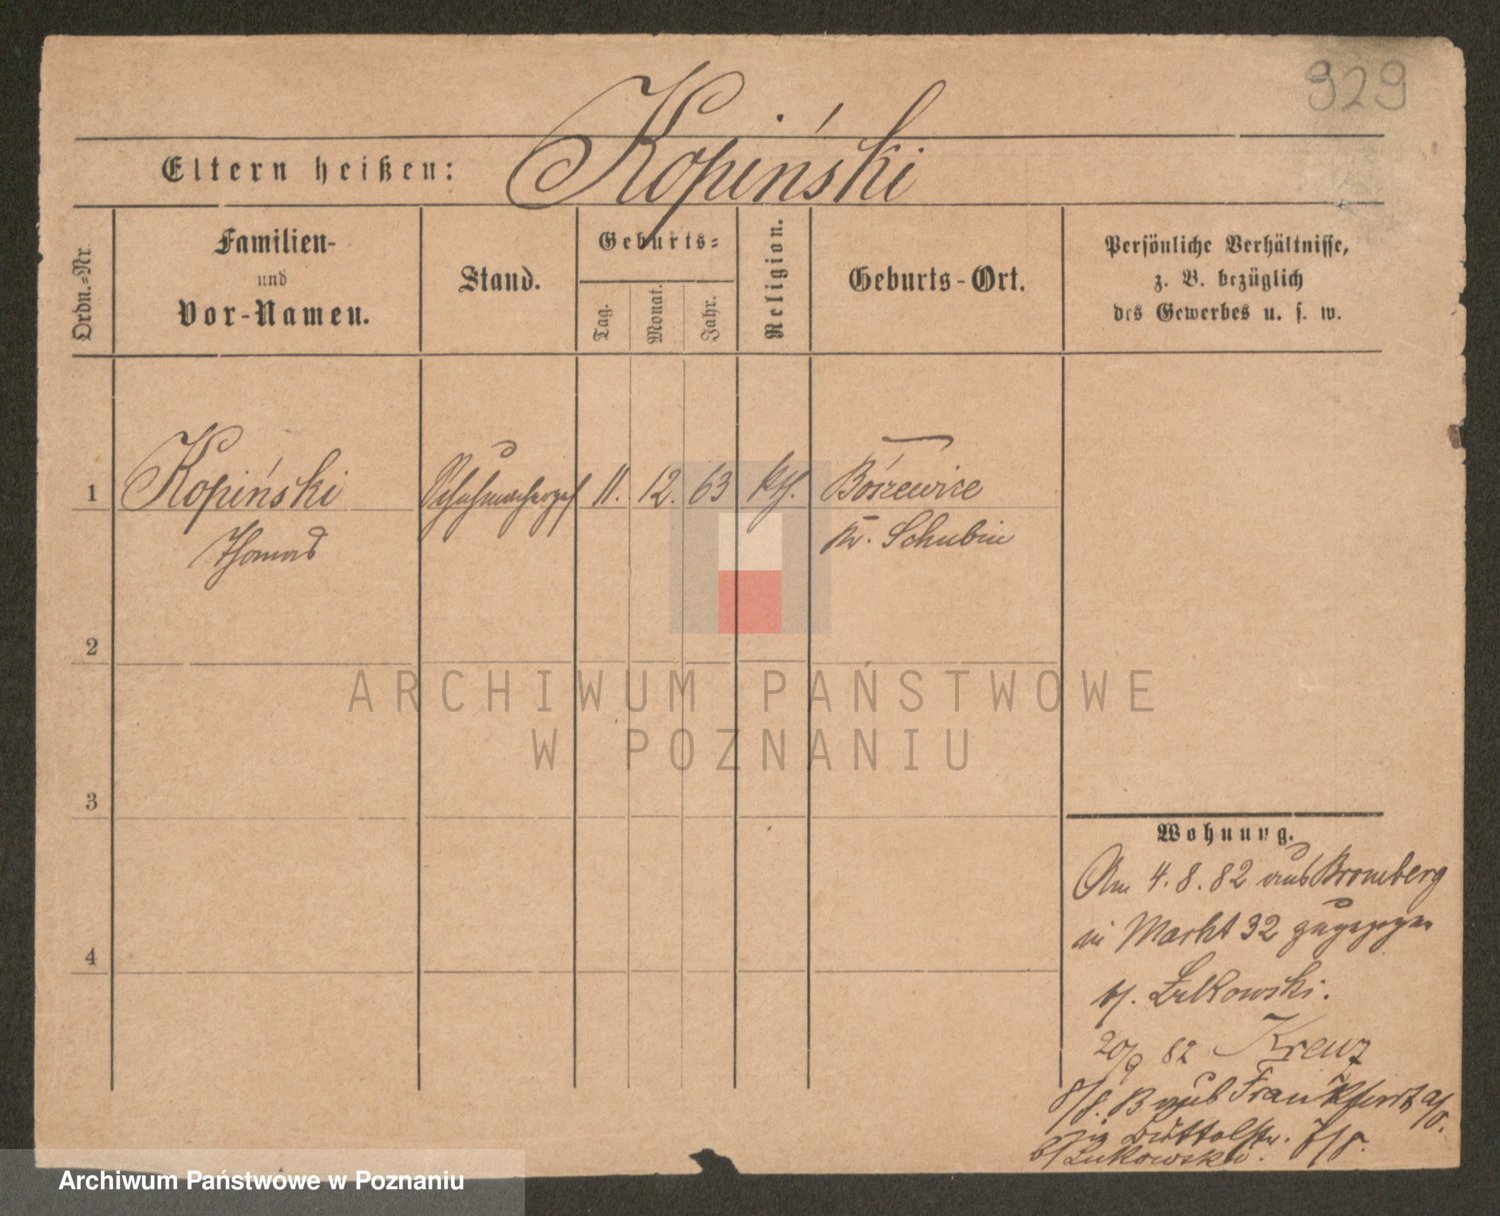 929
Kopiński
Eltern heißen:
Ordn.=Nr.
Familien-
und
Vor-Namen.
Stand.
Geburts=
Tag.
Monat.
Jahr.
Religion.
Geburts-Ort.
Persönliche Verhältnisse,
z. B. bezüglich
des Gewerbes u. s. w.
1
Kopiński
Thomas
Schuhmacherges
11.
12.
63
kth.
Bószewice
Kr. Schubin
2
3
4
Wohnung.
Am 4.8.82 aus Bromberg
in Markt 32 zugezogen
b/. Lutkowski.
20/9 82 Kreuz
8/8. aus Frankfurt a/O.
b/ Lutkowski. 7/8.
ARCHIWUM PAŃSTWOWE
W POZNANIU
Archiwum Państwowe w Poznaniu